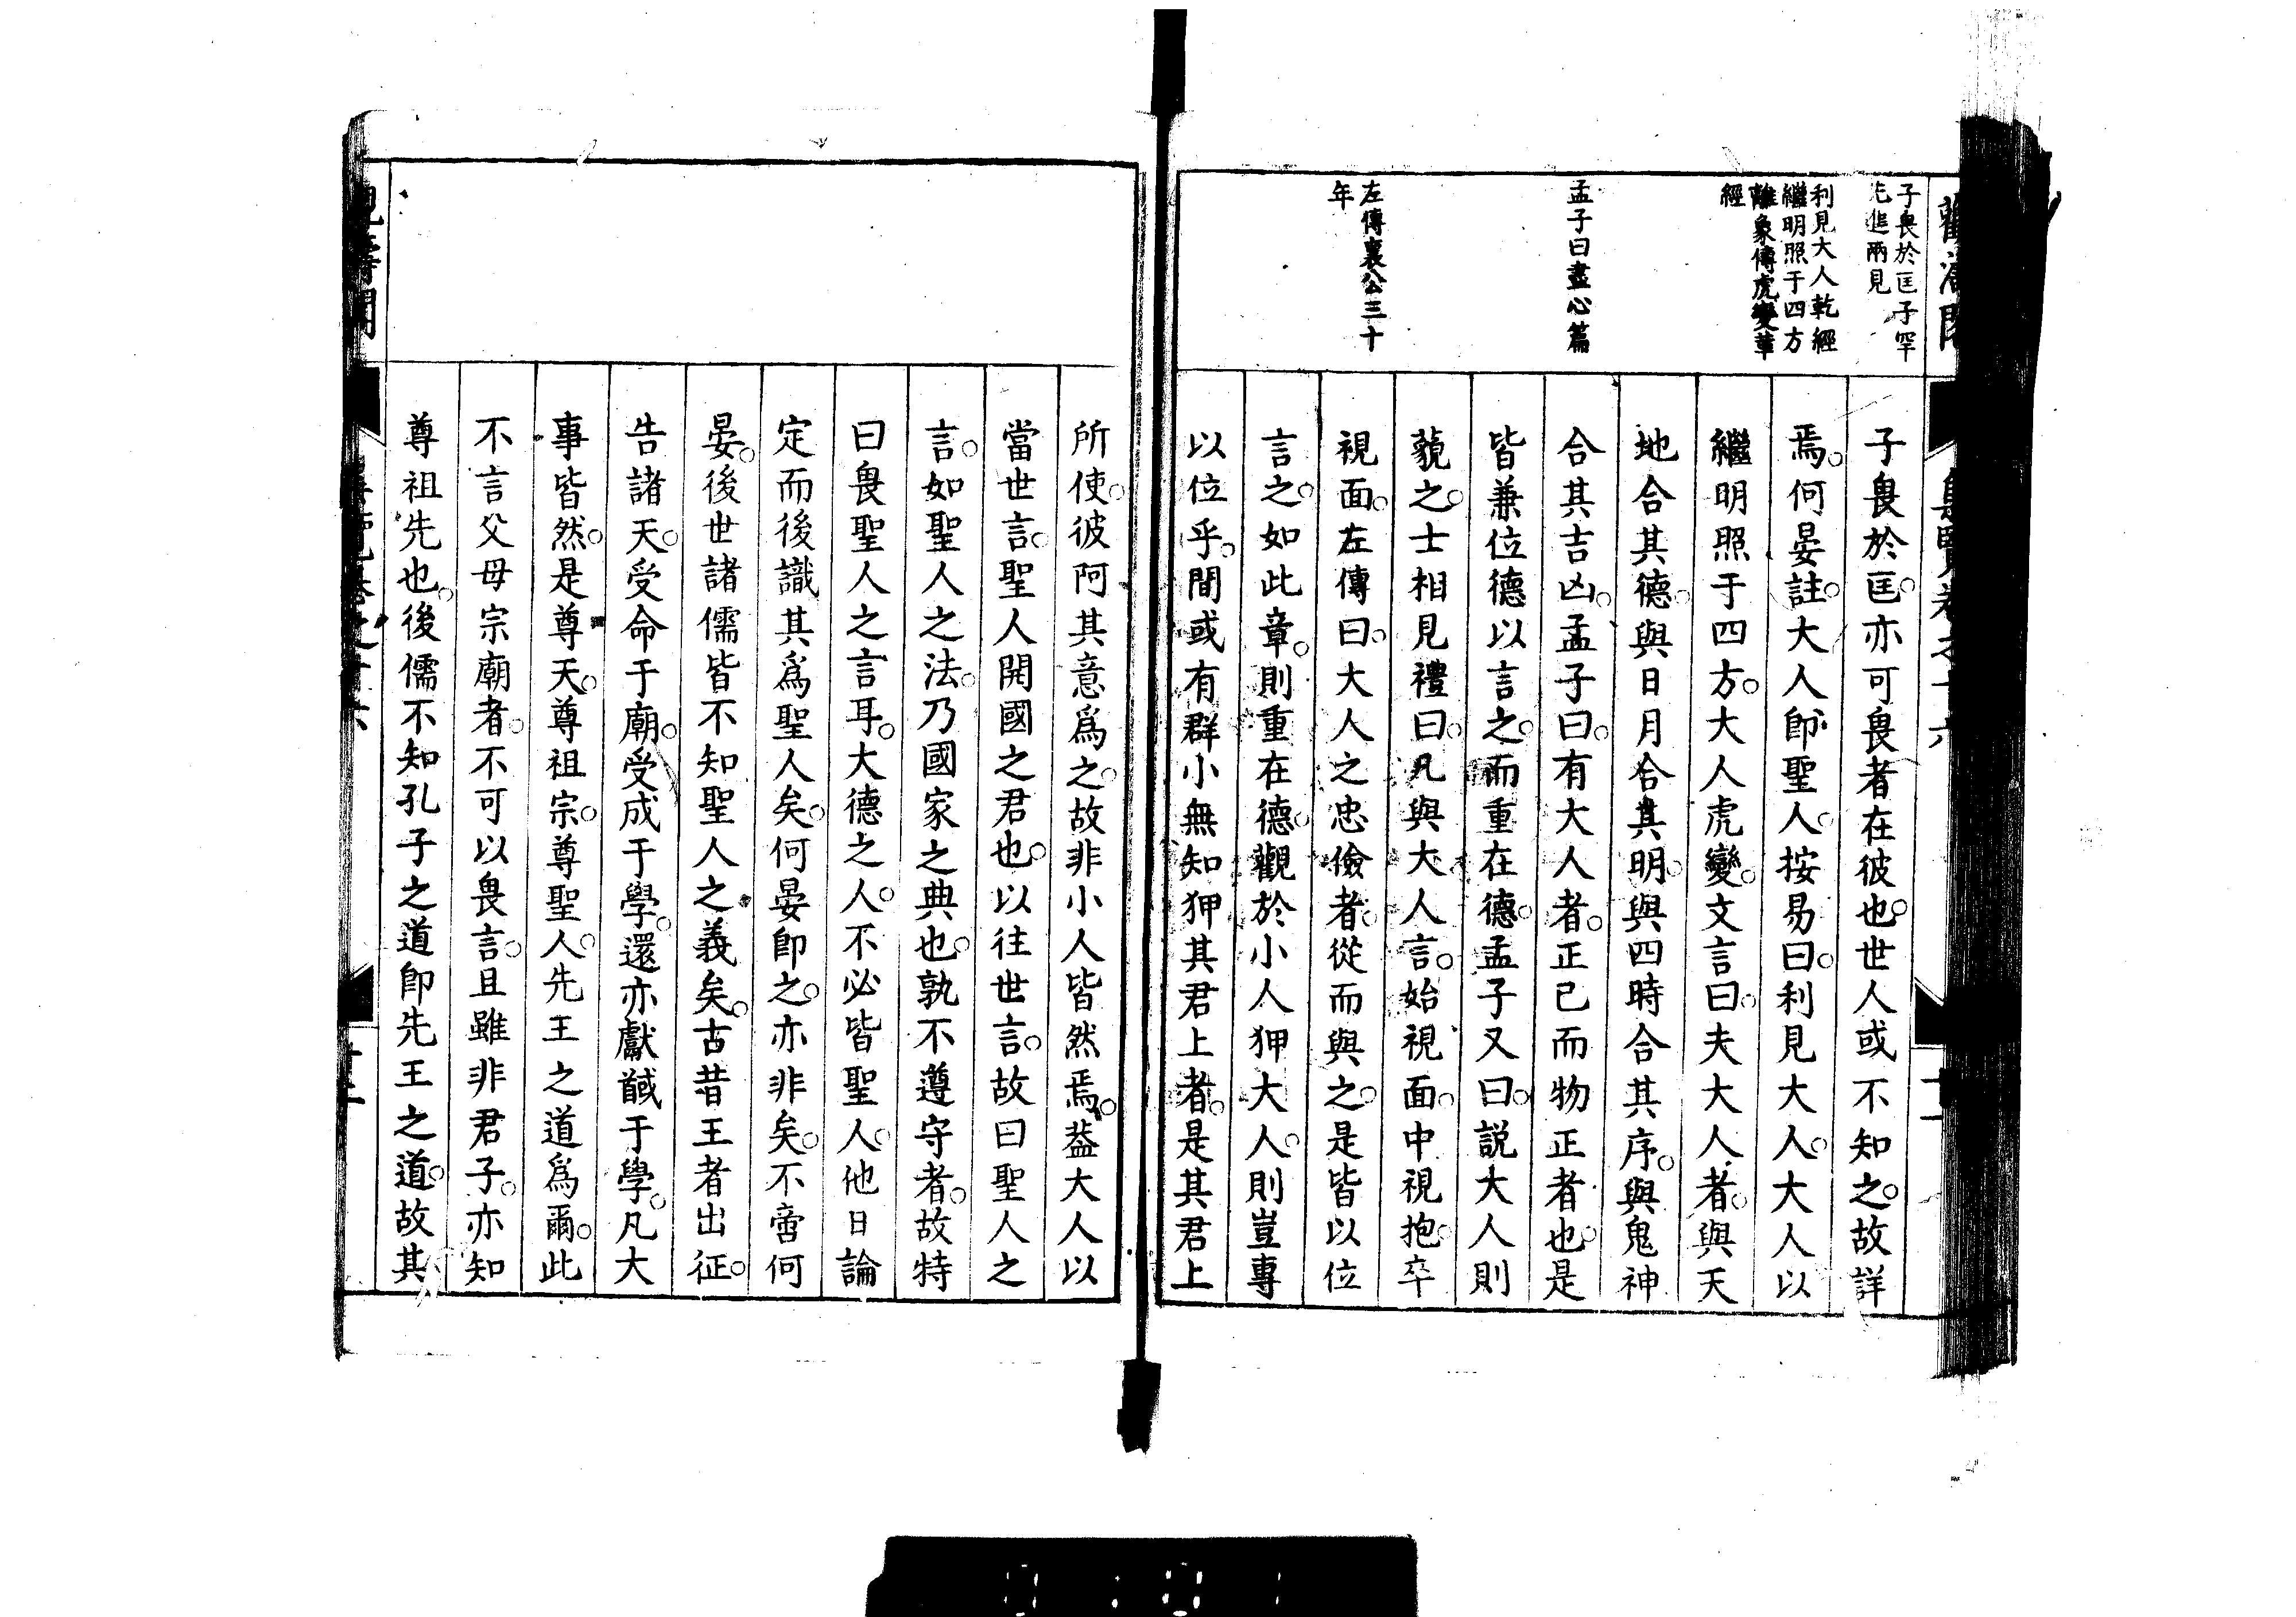 子畏於匡子罕
先進兩見
利見大人乾經
繼明照于四方
離象傳虎變革
經
孟子曰盡心篇
左傳襄公三十
年
子畏於匡亦可畏者在彼也世人或不知之故詳
焉何晏註大人卽聖人按易曰利見大人大人以
繼明照于四方大人虎變文言曰夫大人者與天
地合其德與日月合其明與四時合其序與鬼神
合其吉凶孟子曰有大人者正己而物正者也是
皆兼位德以言之而重在德孟子又曰説大人則
藐之士相見禮曰凡與大人言始視面中視抱卒
視面左傳曰大人之忠儉者從而與之是皆以位
言之如此章則重在德觀於小人狎大人則豈專
以位乎間或有群小無知狎其君上者是其君上
所使彼阿其意爲之故非小人皆然焉葢大人以
當世言聖人開國之君也以往世言故曰聖人之
言如聖人之法乃國家之典也孰不遵守者故特
曰畏聖人之言耳大德之人不必皆聖人他日論
定而後識其爲聖人矣何晏卽之亦非矣不啻何
晏後世諸儒皆不知聖人之義矣古昔王者出征
告諸天受命于廟受成于學還亦獻馘于學凡大
事皆然是尊天尊祖宗尊聖人先王之道爲爾此
不言父母宗廟者不可以畏言且雖非君子亦知
尊祖先也後儒不知孔子之道卽先王之道故其